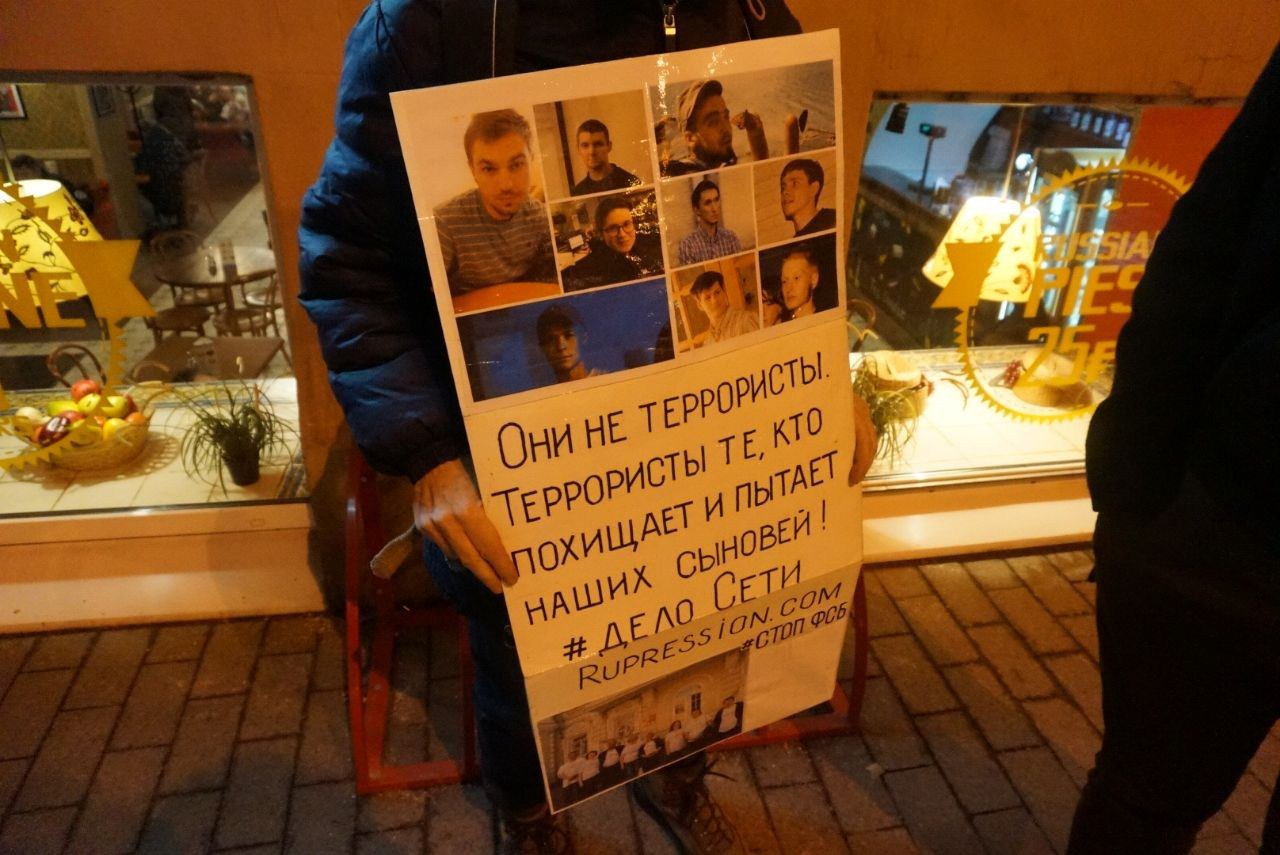 Они не террористы.
Террористы те, кто
похищает и пытает
наших сыновей!
# дело Сети
Rupression.com
#стоп ФСБ
NE
RUSSIA
PIES
25